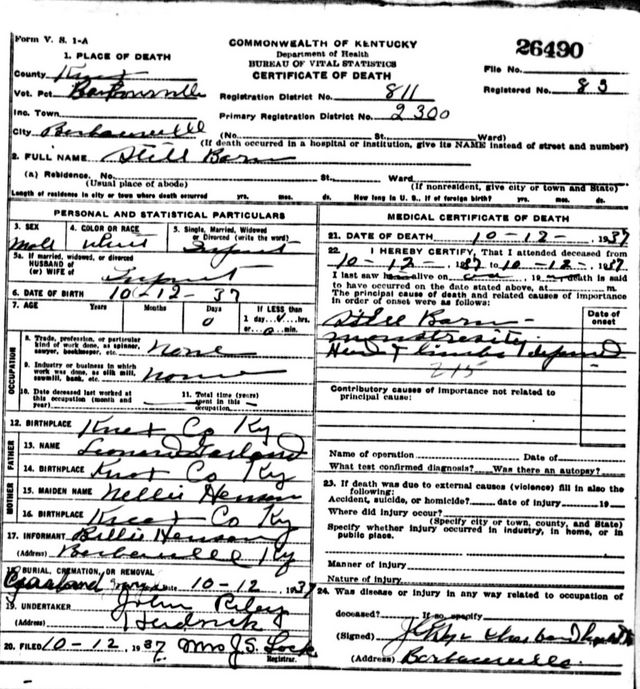 Form V. S. 1-A
COMMONWEALTH OF KENTUCKY
Department of Health
BUREAU OF VITAL STATISTICS
CERTIFICATE OF DEATH
26490
File No.
Registered No. 83
1. PLACE OF DEATH
County Knox
Vot. Pct. Barbourville
Inc. Town
City
Registration District No. 811
Primary Registration District No. 2300
(No. St. Ward)
(If death occurred in a hospital or institution, give its NAME instead of street and number)
2. FULL NAME Still Born
(a) Residence. No. St., Ward.
(Usual place of abode) (If nonresident, give city or town and State)
Length of residence in city or town where death occurred yrs. mos. ds. How long in U. S., if of foreign birth? yrs. mos. ds.
PERSONAL AND STATISTICAL PARTICULARS
3. SEX 4. COLOR OR RACE 5. Single, Married, Widowed
or Divorced (write the word)
Infant
5a. If married, widowed, or divorced
HUSBAND of
(or) WIFE of
Infant
6. DATE OF BIRTH 10-12-37
7. AGE Years Months Days If LESS than
0 1 day, hrs.
or min.
OCCUPATION
8. Trade, profession, or particular
kind of work done, as spinner,
sawyer, bookkeeper, etc. none
9. Industry or business in which
work was done, as silk mill,
sawmill, bank, etc. none
10. Date deceased last worked at
this occupation (month and
year)
11. Total time (years)
spent in this
occupation
12. BIRTHPLACE Knox Co Ky
FATHER
13. NAME Leonard Garland
14. BIRTHPLACE Knox Co Ky
MOTHER
15. MAIDEN NAME Nellie Henson
16. BIRTHPLACE Knox Co Ky
17. INFORMANT Billie Henson
(Address) Ky
18. BURIAL, CREMATION, OR REMOVAL
Garland 10-12 1937
19. UNDERTAKER John Riley
(Address)
20. FILED 10-12, 1937 Mrs J.S. Lock
Registrar.
MEDICAL CERTIFICATE OF DEATH
21. DATE OF DEATH 10-12- 1937
22. I HEREBY CERTIFY, That I attended deceased from
10-12 1937 to 10-12-, 1937
I last saw h alive on 19 death is said
to have occurred on the date stated above, at m.
The principal cause of death and related causes of importance
in order of onset were as follows:
Date of
onset
Still Born
monstrosity
Head & limbs
Contributory causes of importance not related to
principal cause:
Name of operation Date of
What test confirmed diagnosis? Was there an autopsy?
23. If death was due to external causes (violence) fill in also the
following:
Accident, suicide, or homicide? date of injury 19
Where did injury occur?
(Specify city or town, county, and State)
Specify whether injury occurred in industry, in home, or in
public place.
Manner of injury
Nature of injury
24. Was disease or injury in any way related to occupation of
deceased? If so, specify
(Signed)
(Address)